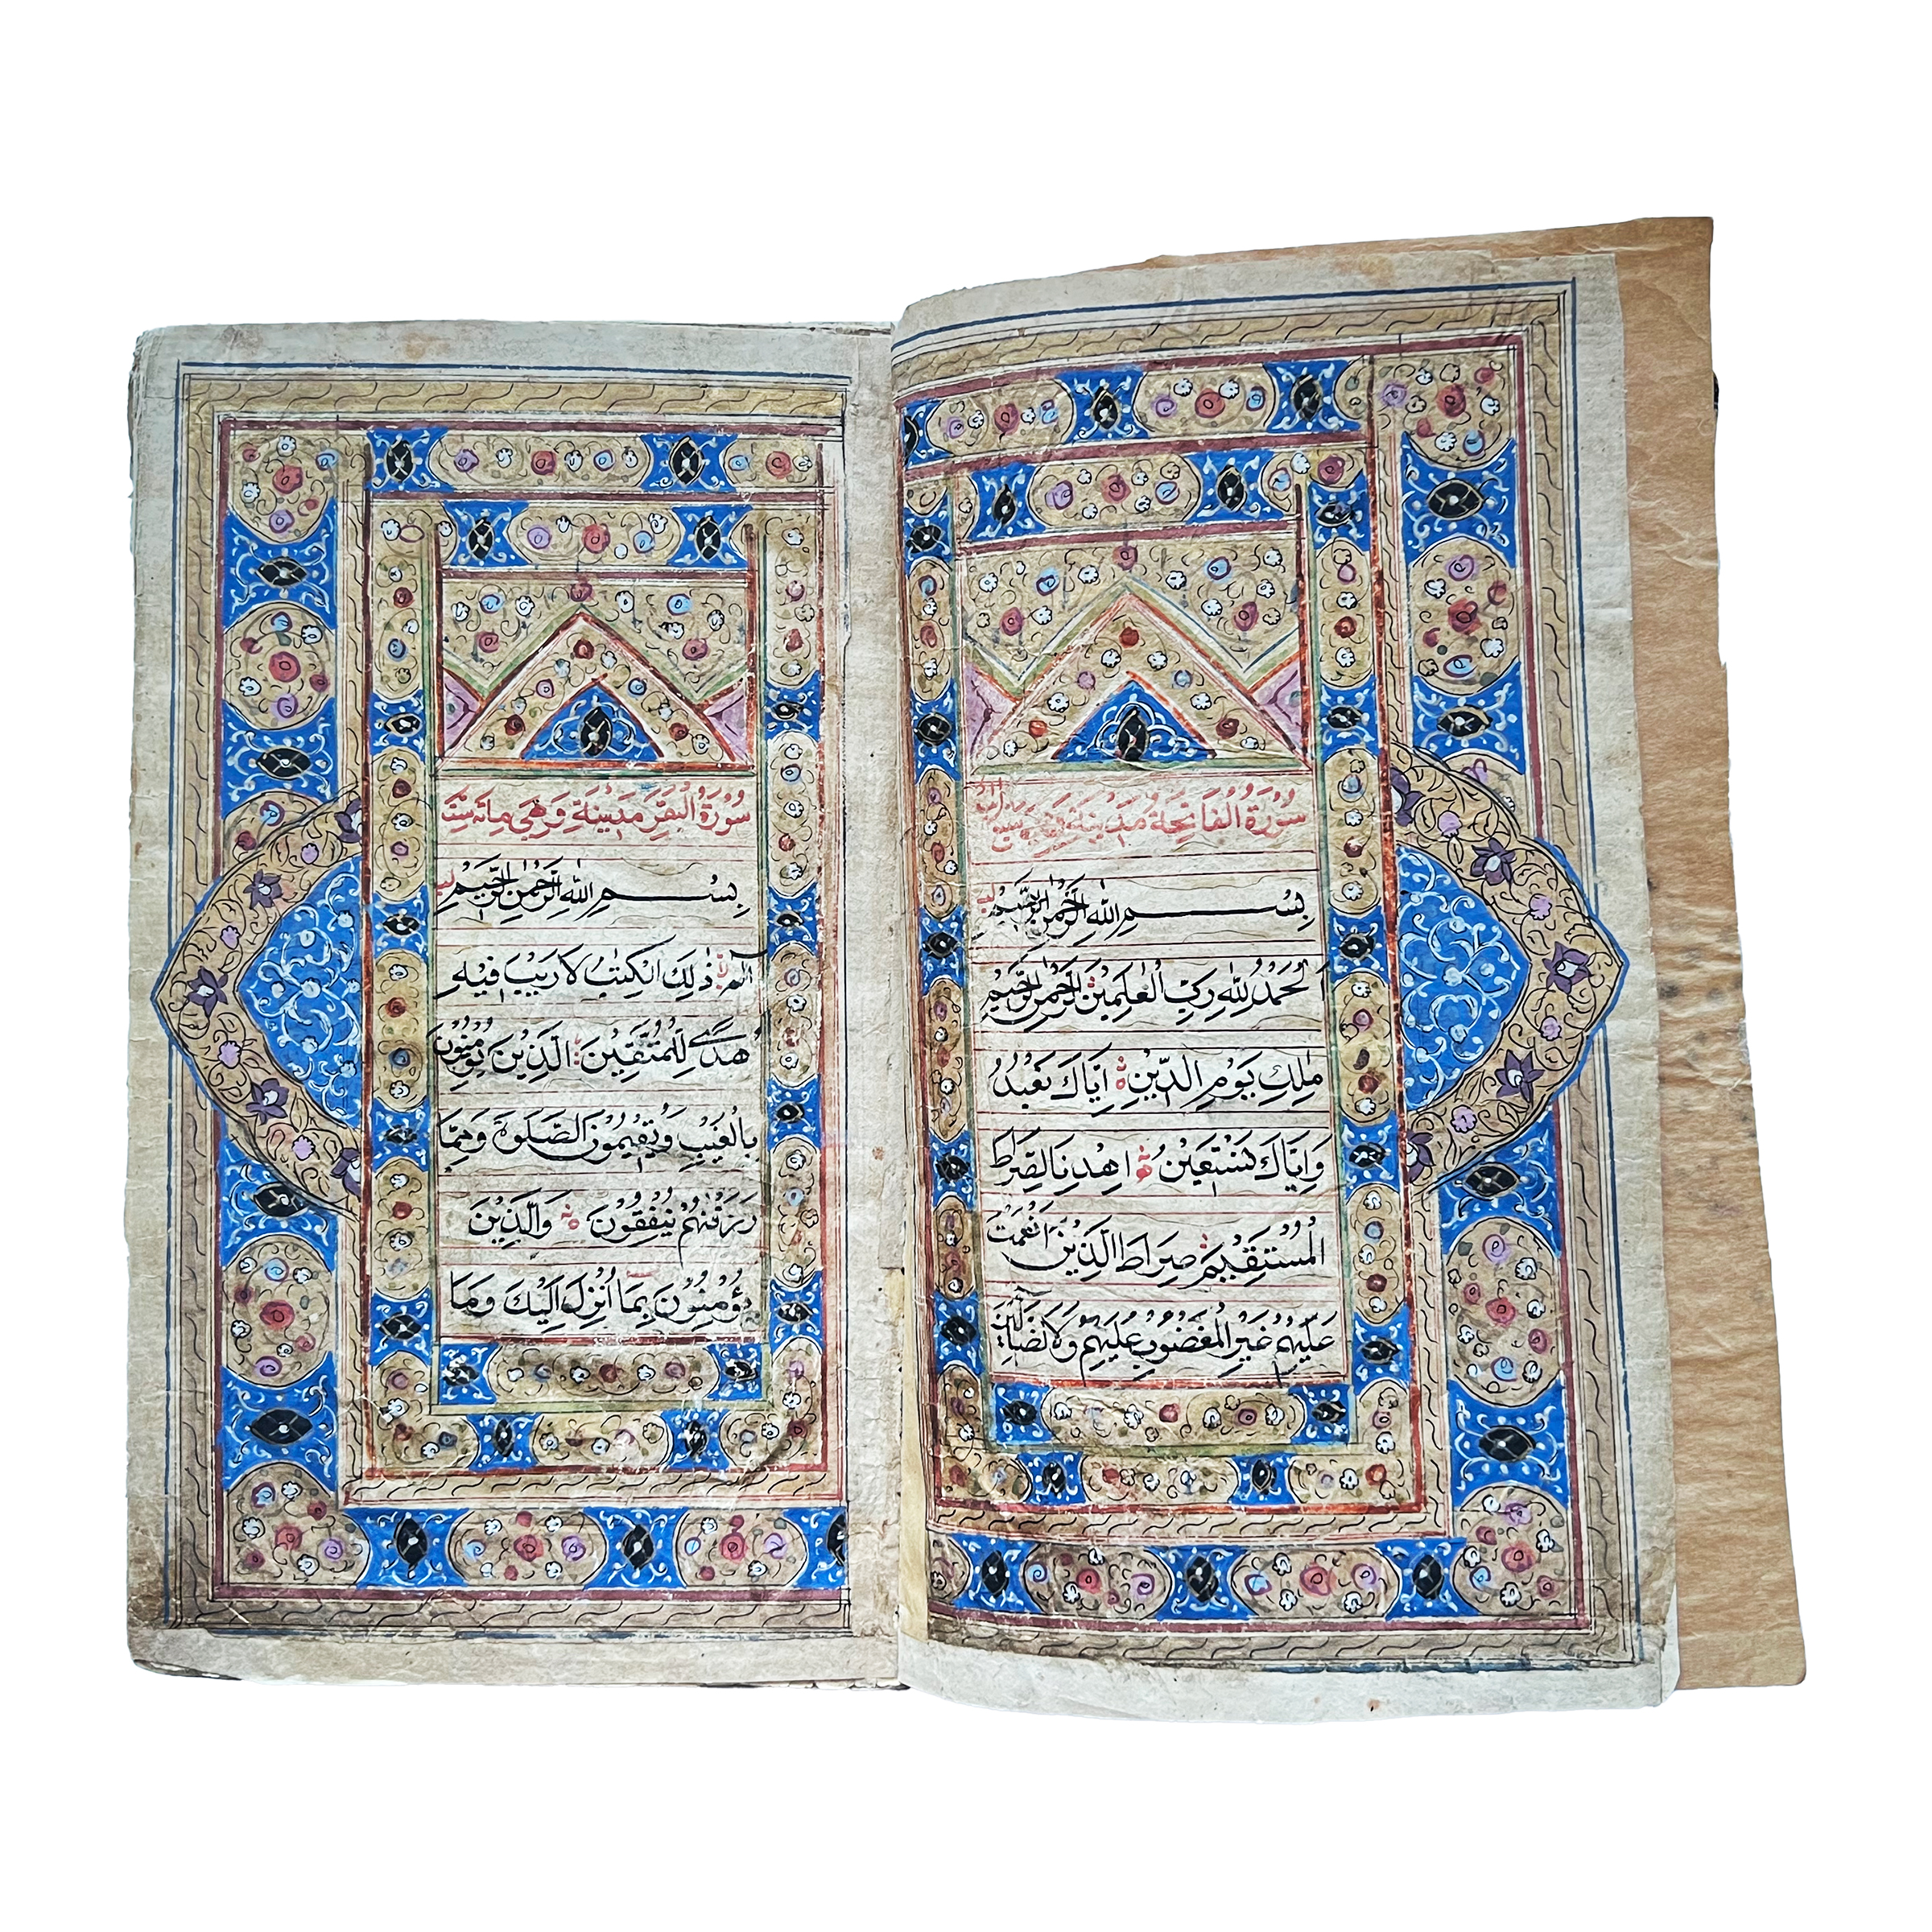 سُوْرَةُ الْفَاتِحَةُ مَدَنِيَّةٌ وَهِيَ سَبْعُ
بِسْمِ اللّٰهِ الرَّحْمٰنِ الرَّحِيْمِ
اَلْحَمْدُ لِلّٰهِ رَبِّ الْعٰلَمِيْنَ الرَّحْمٰنِ الرَّحِيْمِ
مٰلِكِ يَوْمِ الدِّيْنِ اِيَّاكَ نَعْبُدُ
وَاِيَّاكَ نَسْتَعِيْنُ اِهْدِنَا الصِّرَاطَ
الْمُسْتَقِيْمَ صِرَاطَ الَّذِيْنَ اَنْعَمْتَ
عَلَيْهِمْ غَيْرِ الْمَغْضُوْبِ عَلَيْهِمْ وَلَا الضَّآلِّيْنَ
سُوْرَةُ الْبَقَرِ مَدَنِيَّةٌ وَهِيَ مِائَة
بِسْمِ اللّٰهِ الرَّحْمٰنِ الرَّحِيْمِ
الٓمّٓ ذٰلِكَ الْكِتٰبُ لَا رَيْبَ فِيْهِ
هُدًى لِلْمُتَّقِيْنَ الَّذِيْنَ يُؤْمِنُوْنَ
بِالْغَيْبِ وَيُقِيْمُوْنَ الصَّلٰوةَ وَمِمَّا
رَزَقْنٰهُمْ يُنْفِقُوْنَ وَالَّذِيْنَ
يُؤْمِنُوْنَ بِمَا اُنْزِلَ اِلَيْكَ وَمَا